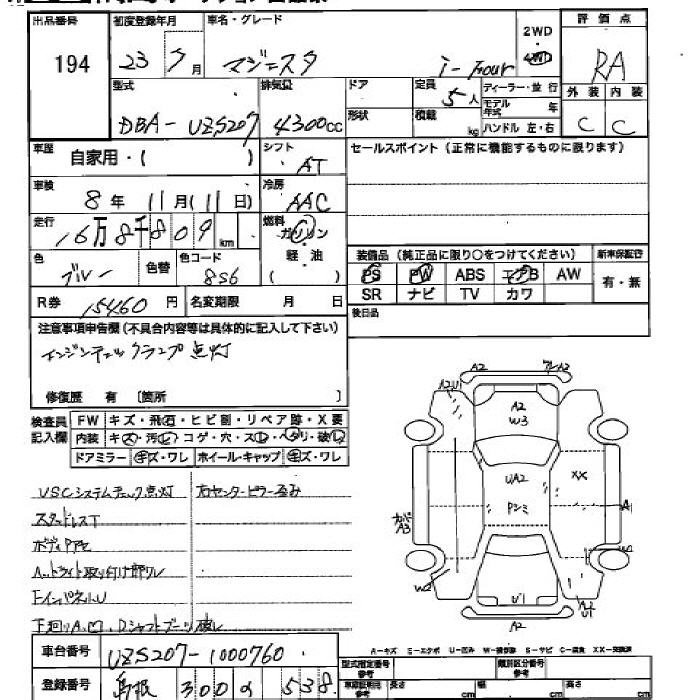 出品番号 初度登録年月 車名・グレード 2WD 評価点
194 23 5月 マジェスタ i-Four 4WD RA
型式 排気量 ドア 定員 5人 ディーラー・並行 外装 内装
DBA-UZS207 4300cc 形状 積載 kg モデル年式 年 ハンドル 左・右 C C
車歴 自家用・( ) シフト AT セールスポイント(正常に機能するものに限ります)
車検 8年 11月(11日) 冷房 AAC
走行 16万8千809km 燃料 ガソリン・軽油 ( )
装備品(純正品に限り○をつけてください) 新車保証書
色 ブルー 色替 色コード 8S6 PS PW ABS エアB AW 有・無
R券 15460円 名変期限 月 日 SR ナビ TV カワ
注意事項申告欄(不具合内容等は具体的に記入して下さい) 後日品
エンジンチェックランプ点灯
修復歴 有 〔箇所 〕
検査員記入欄 FW キズ・飛石・ヒビ割・リペア跡・X要
内装 キズ・汚レ・コゲ・穴・スレ・ヘタリ・破レ
ドアミラー キズ・ワレ ホイール・キャップ キズ・ワレ
VSCシステムチェック点灯 右センターピラー歪み
スタッドレスT
ボディ
ライト取り付け部
インパネ
下廻り シャフトブーツ破レ
A2 A2
A2 U1
A2
W3
UA2 XX
Pシミ
A3 A1
W2
U1 A2
U1
A2
車台番号 UZS207-1000760
A-キズ S-エクボ U-凹み W-補修跡 S-サビ C-腐食 XX-交換済
登録番号 島根 300 538
型式指定番号 類別区分番号
長さ cm 幅 cm 高さ cm